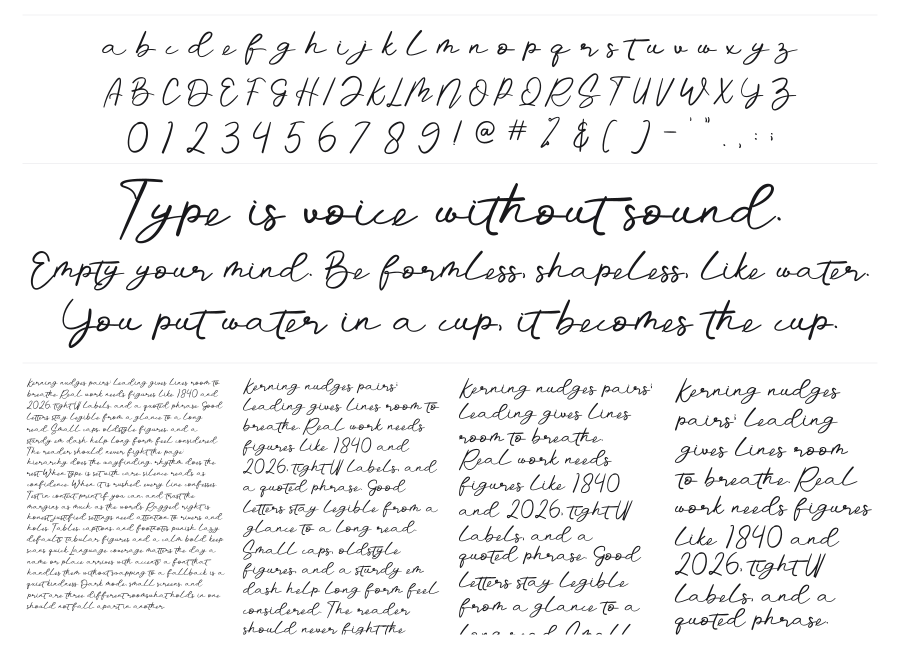 a b c d e f g h i j k l m n o p q r s t u v w x y z
A B C D E F G H I J K L M N O P Q R S T U V W X Y Z
0 1 2 3 4 5 6 7 8 9 ! @ # % & ( ) - ' " . , : ;
Type is voice without sound.
Empty your mind. Be formless, shapeless, like water.
You put water in a cup, it becomes the cup.
Kerning nudges pairs; leading gives lines room to
breathe. Real work needs figures like 1840 and
2026, tight UI labels, and a quoted phrase. Good
letters stay legible from a glance to a long
read. Small caps, oldstyle figures, and a
sturdy em dash help long form feel considered.
The reader should never fight the page
hierarchy does the wayfinding, rhythm does the
rest. When type is set with care, silence reads as
confidence. When it is rushed, every line confesses.
Test in context, print if you can, and trust the
margins as much as the words. Ragged right is
honest, justified settings need attention to rivers and
holes. Tables, captions, and footnotes punish lazy
defaults, tabular figures and a calm bold keep
scans quick. Language coverage matters the day a
name or place arrives with accents a font that
handles them without swapping to a fallback is a
quiet kindness. Dark mode, small screens, and
print are three different rooms, what holds in one
should not fall apart in another.
Kerning nudges pairs;
leading gives lines room to
breathe. Real work needs
figures like 1840 and
2026, tight UI labels, and
a quoted phrase. Good
letters stay legible from a
glance to a long read.
Small caps, oldstyle
figures, and a sturdy em
dash help long form feel
considered. The reader
should never fight the
Kerning nudges pairs;
leading gives lines
room to breathe.
Real work needs
figures like 1840
and 2026, tight UI
labels, and a
quoted phrase. Good
letters stay legible
from a glance to a
long read. Small
Kerning nudges
pairs; leading
gives lines room
to breathe. Real
work needs figures
like 1840 and
2026, tight UI
labels, and a
quoted phrase.